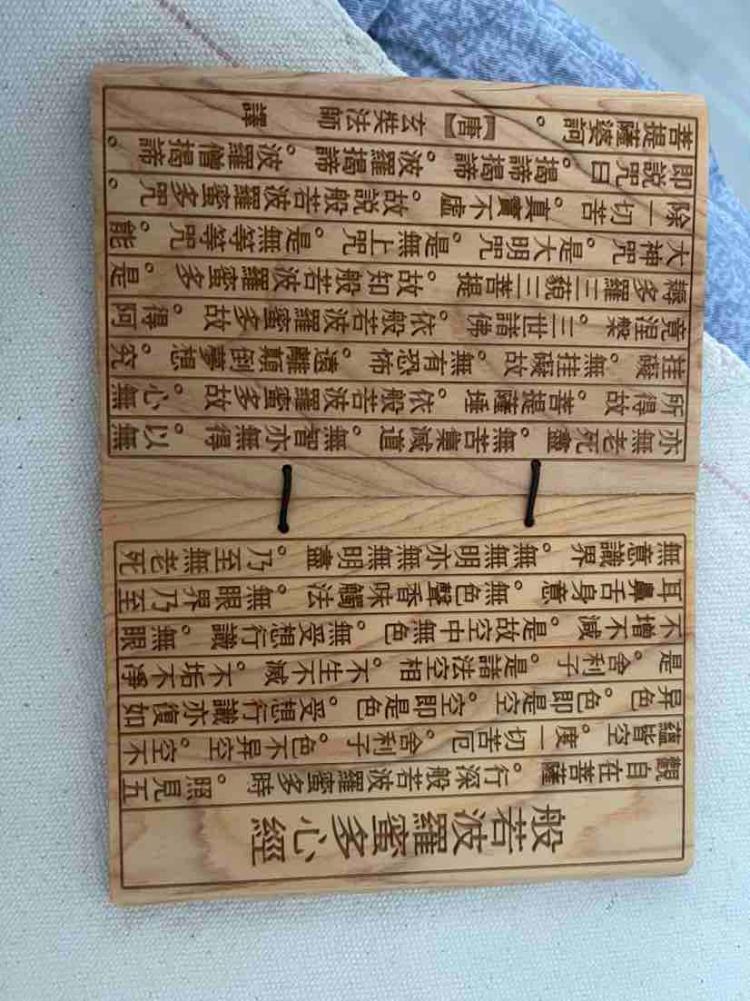 般若波羅蜜多心經
觀自在菩薩。行深般若波羅蜜多時。照見五
蘊皆空。度一切苦厄。舍利子。色不异空。空不
异色。色即是空。空即是色。受想行識亦復如
是。舍利子。是諸法空相。不生不滅。不垢不淨
不增不減。是故空中無色。無受想行識。無眼
耳鼻舌身意。無色聲香味觸法。無眼界乃至
無意識界。無無明亦無無明盡。乃至無老死
亦無老死盡。無苦集滅道。無智亦無得。以無
所得故。菩提薩埵。依般若波羅蜜多故。心無
挂礙。無挂礙故。無有恐怖。遠離顛倒夢想。究
竟涅槃。三世諸佛。依般若波羅蜜多故。得阿
耨多羅三藐三菩提。故知般若波羅蜜多。是
大神咒。是大明咒。是無上咒。是無等等咒。能
除一切苦。真實不虛。故說般若波羅蜜多咒。
即說咒曰。揭諦揭諦。波羅揭諦。波羅僧揭諦。
菩提薩婆訶。【唐】玄奘法師 譯